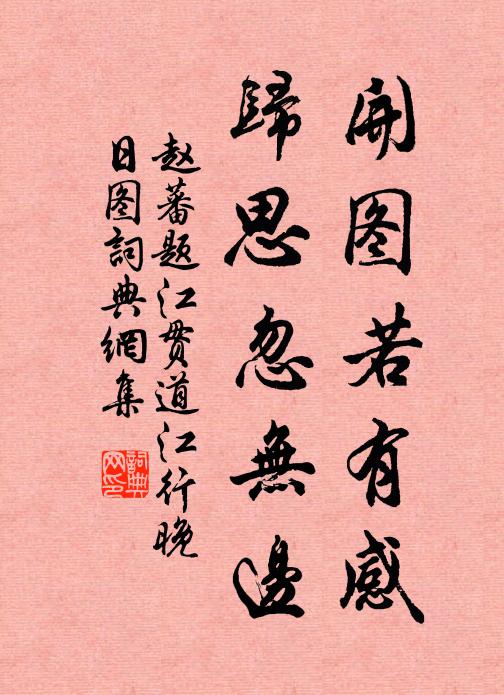 開图若有感
歸思忽無邊
赵蕃题江贯道江行晚
日图詞典網集
詞典
网印